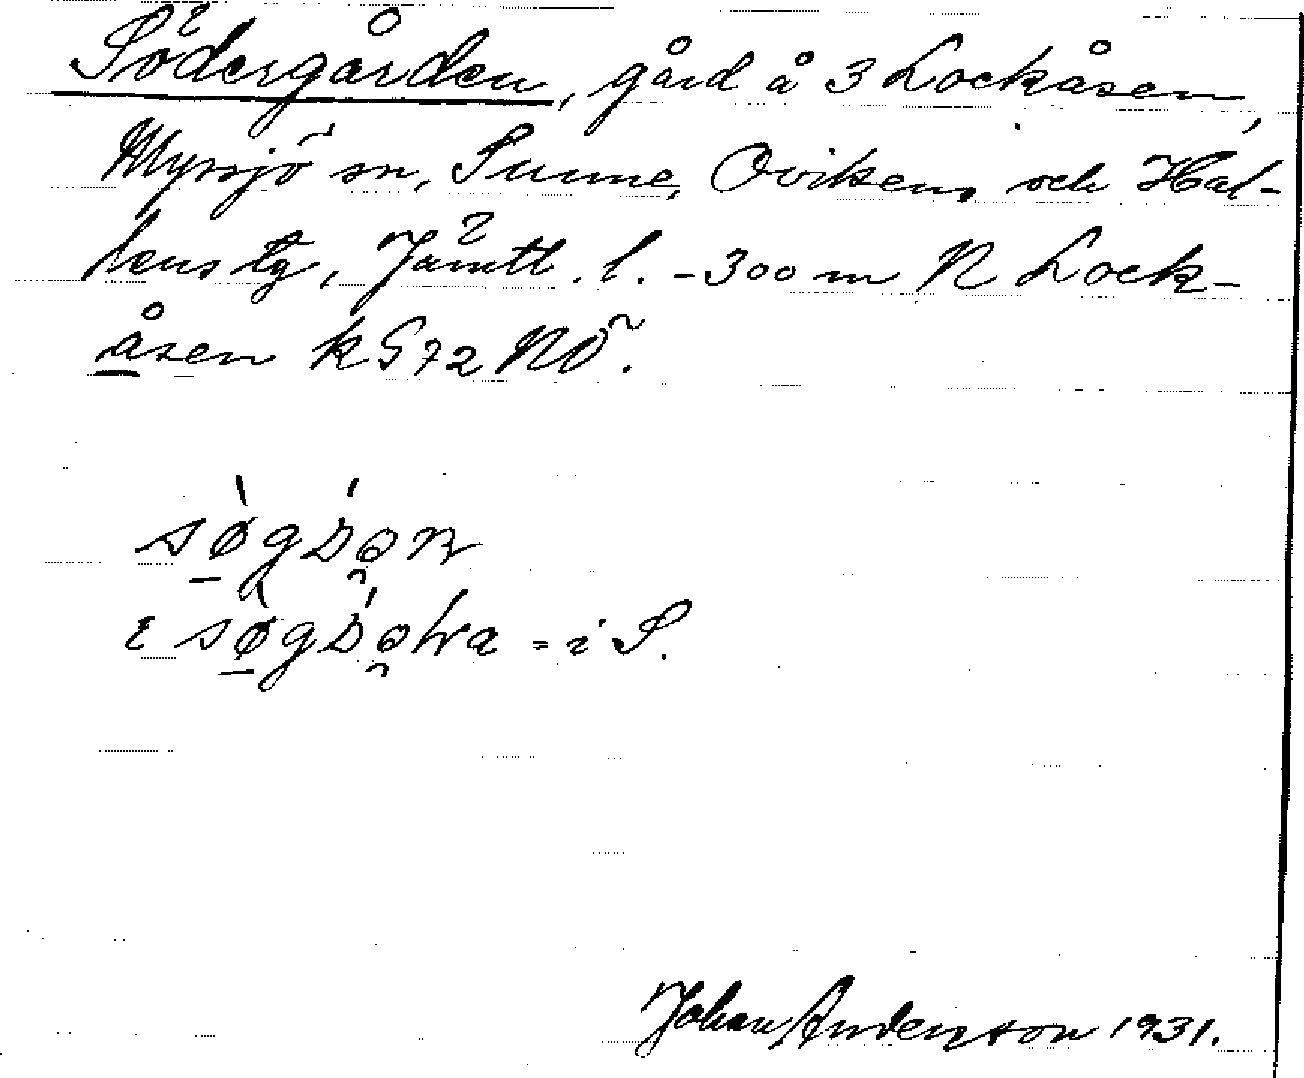 Södergården, gård å 3 Lockåsen,
Myssjö sn, Sunne, Ovikens och Hal-
lens tg, Jämtl. l. - 300 m N Lock-
åsen k G 72 NÖ.
= i S.
Johan Anderson 1931.